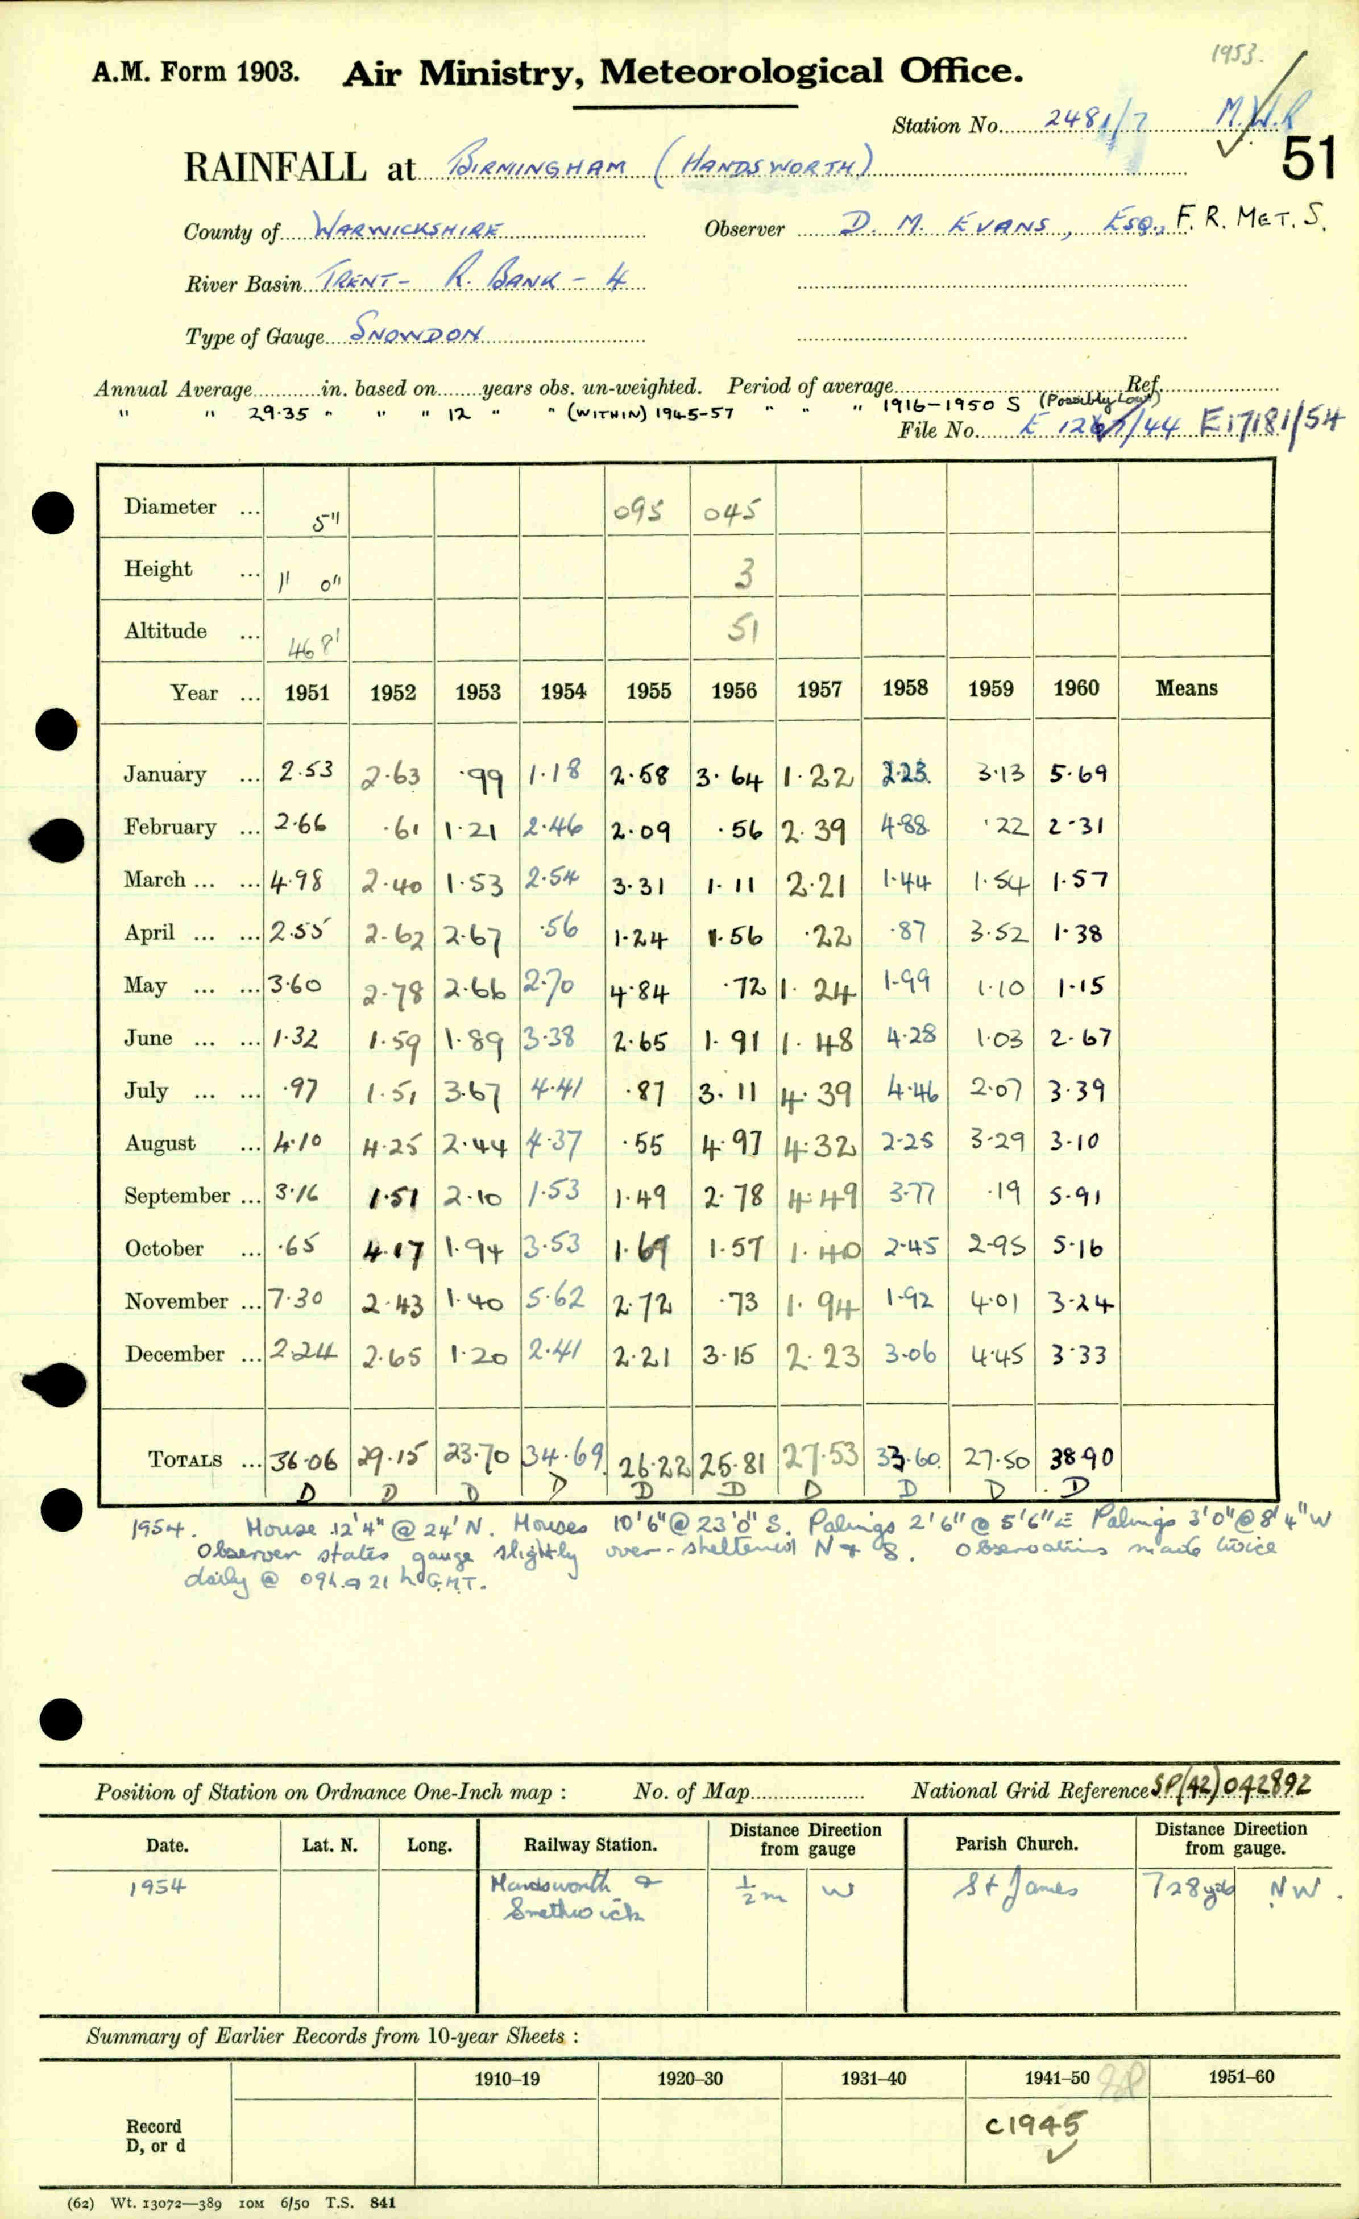 1953.
A.M. Form 1903. Air Ministry, Meteorological Office.
Station No. 2481/7 M.W.R
51
RAINFALL at BIRMINGHAM (HANDSWORTH)
County of WARWICKSHIRE Observer D. M. EVANS, ESQ., F. R. MET. S.
River Basin TRENT - R. BANK - 4
Type of Gauge SNOWDON
Annual Average in. based on years obs. un-weighted. Period of average Ref.
" " 29.35 " " " 12 " " (WITHIN) 1945-57 " " " 1916-1950 S (Possibly Low)
File No. E /44 E17181/54
Diameter ... 5" 095 045
Height ... 1' 0" 3
Altitude ... 468' 51
Year ... 1951 1952 1953 1954 1955 1956 1957 1958 1959 1960 Means
January ... 2.53 2.63 .99 1.18 2.58 3.64 1.22 2.23 3.13 5.69
February ... 2.66 .61 1.21 2.46 2.09 .56 2.39 4.88 .22 2.31
March ... ... 4.98 2.40 1.53 2.54 3.31 1.11 2.21 1.44 1.54 1.57
April ... ... 2.55 2.62 2.67 .56 1.24 1.56 .22 .87 3.52 1.38
May ... ... 3.60 2.78 2.66 2.70 4.84 .72 1.24 1.99 1.10 1.15
June ... ... 1.32 1.59 1.89 3.38 2.65 1.91 1.48 4.28 1.03 2.67
July ... ... .97 1.51 3.67 4.41 .87 3.11 4.39 4.46 2.07 3.39
August ... 4.10 4.25 2.44 4.37 .55 4.97 4.32 2.25 3.29 3.10
September ... 3.16 1.51 2.10 1.53 1.49 2.78 4.49 3.77 .19 5.91
October ... .65 4.17 1.94 3.53 1.67 1.57 1.40 2.45 2.95 5.16
November ... 7.30 2.43 1.40 5.62 2.72 .73 1.94 1.92 4.01 3.24
December ... 2.24 2.65 1.20 2.41 2.21 3.15 2.23 3.06 4.45 3.33
TOTALS ... 36.06 29.15 23.70 34.69 26.22 25.81 27.53 33.60 27.50 38.90
D D D D D D D D D D
1954. House 12'4" @ 24' N. Houses 10'6" @ 23'0" S. Palings 2'6" @ 5'6" E Palings 3'0" @ 8'4" W
Observer states gauge slightly over-sheltered N & S. Observations made twice
daily @ 09h. & 21h G.M.T.
Position of Station on Ordnance One-Inch map : No. of Map National Grid Reference SP(42)042892
Date. Lat. N. Long. Railway Station. Distance from gauge Direction Parish Church. Distance from gauge. Direction
1954 Handsworth & Smethwick ½ m W St James 728 yds NW.
Summary of Earlier Records from 10-year Sheets :
1910–19 1920–30 1931–40 1941–50 1951–60
Record
D, or d
C1945
(62) Wt. 13072—389 10M 6/50 T.S. 841